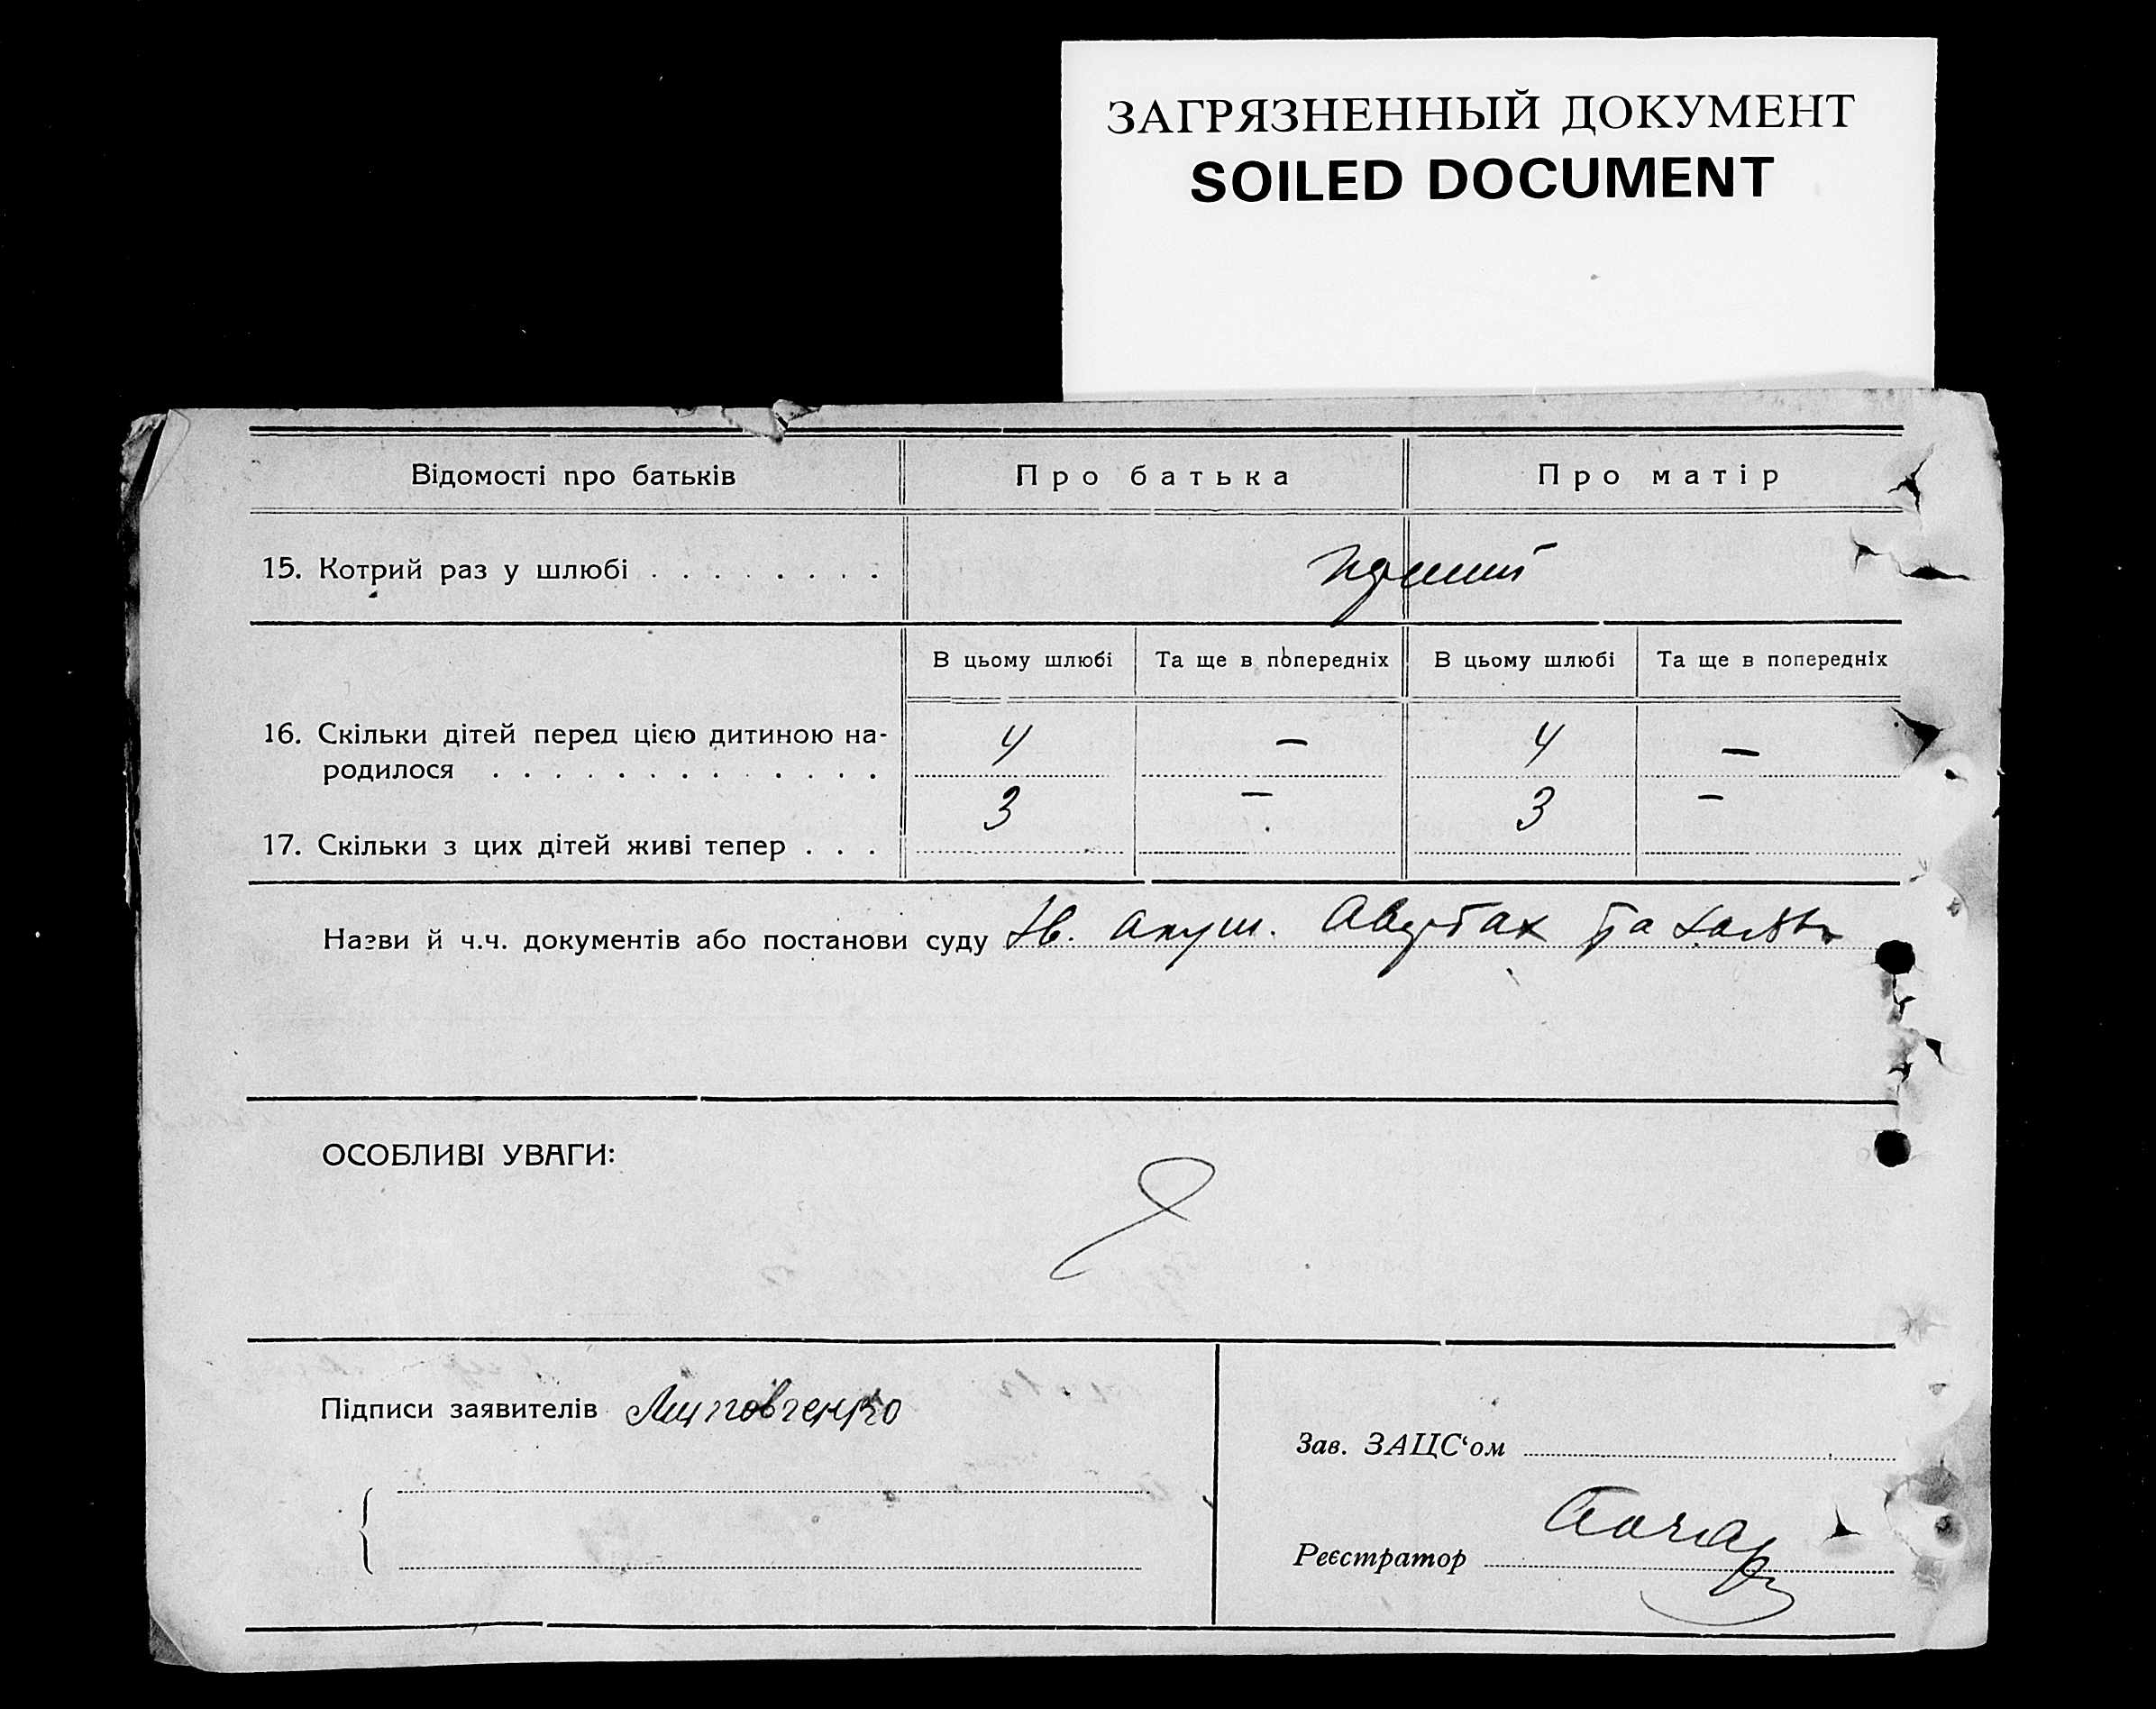 ЗАГРЯЗНЕННЫЙ ДОКУМЕНТ
SOILED DOCUMENT
Відомості про батьків Про батька Про матір
15. Котрий раз у шлюбі . . . . . . . .
В цьому шлюбі Та ще в попередніх В цьому шлюбі Та ще в попередніх
16. Скільки дітей перед цією дитиною на- 4 — 4 —
родилося . . . . . . . . . . . . .
17. Скільки з цих дітей живі тепер . . . 3 — 3 —
Назви й ч.ч. документів або постанови суду акуш. та
ОСОБЛИВІ УВАГИ:
Підписи заявителів
Зав. ЗАЦС‘ом
Реєстратор